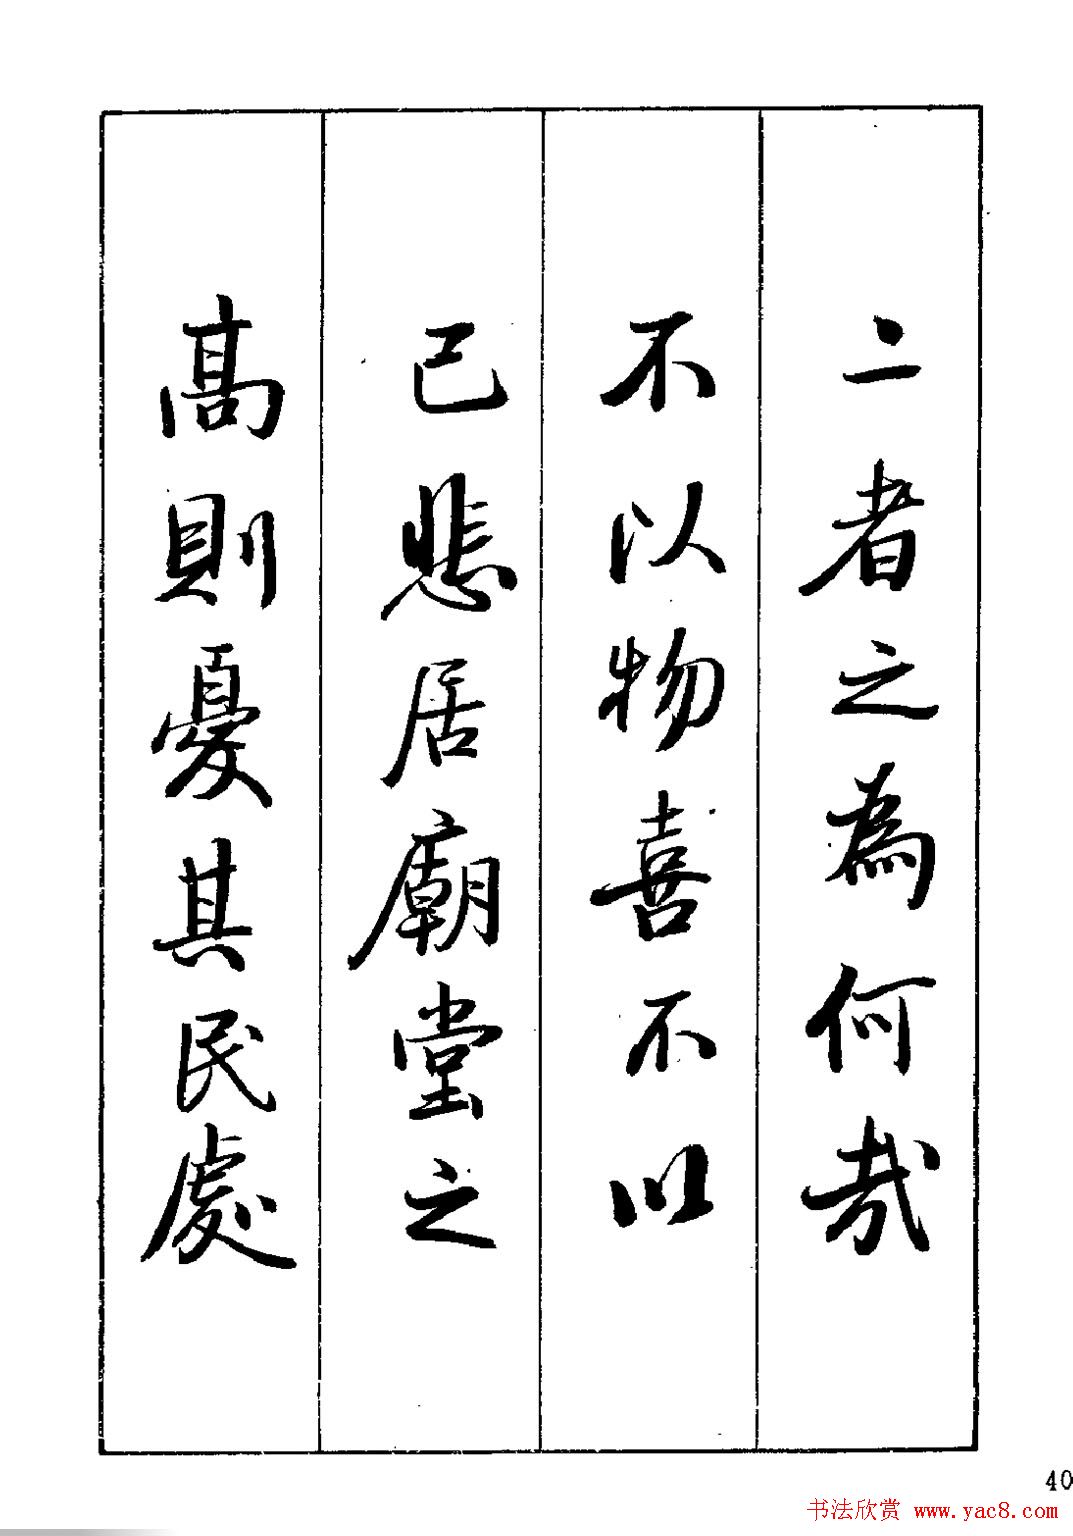 二者之為何哉
不以物喜不以
己悲居廟堂之
高則憂其民處
40
书法欣赏 www.yac8.com